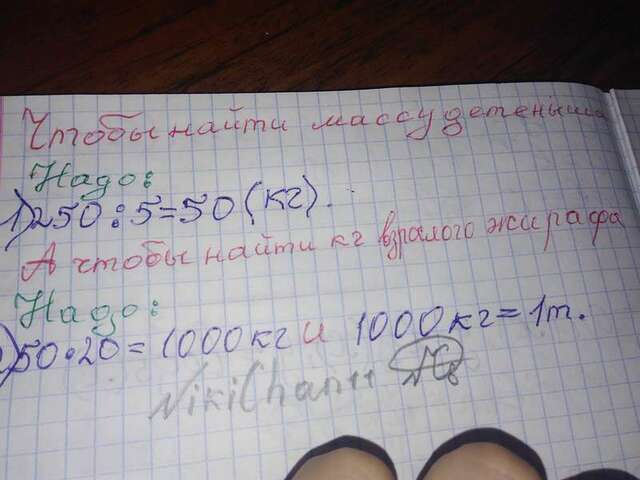 Чтобы найти массу детеныша
Надо:
1) 250:5=50 (кг).
А чтобы найти кг взралого жирафа
Надо:
2) 50·20=1000кг и 1000кг=1т.
NikiChan11